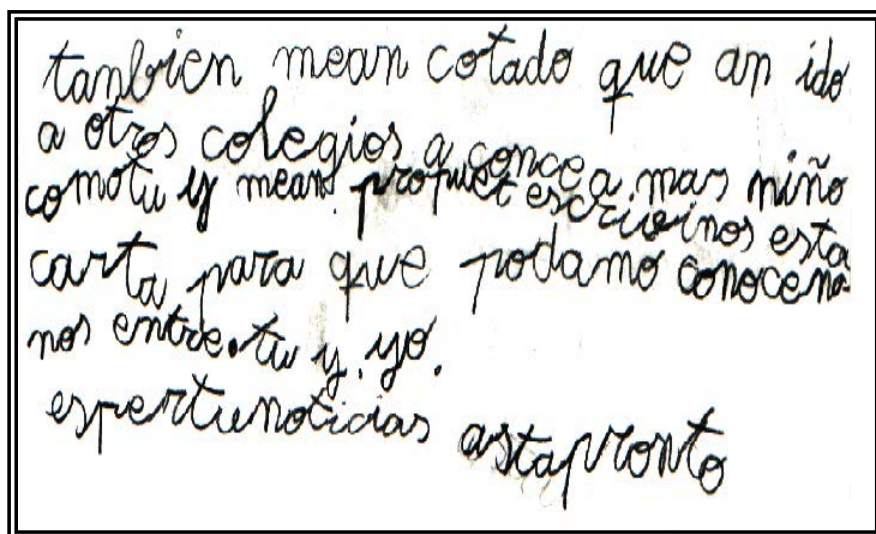 tanbien mean cotado que an ido
a otros colegios a conce a mas niño
comotu y mean propuet escrivinos esta
carta para que podamo conocena
nos entre tu y yo.
espertunoticias astapronto